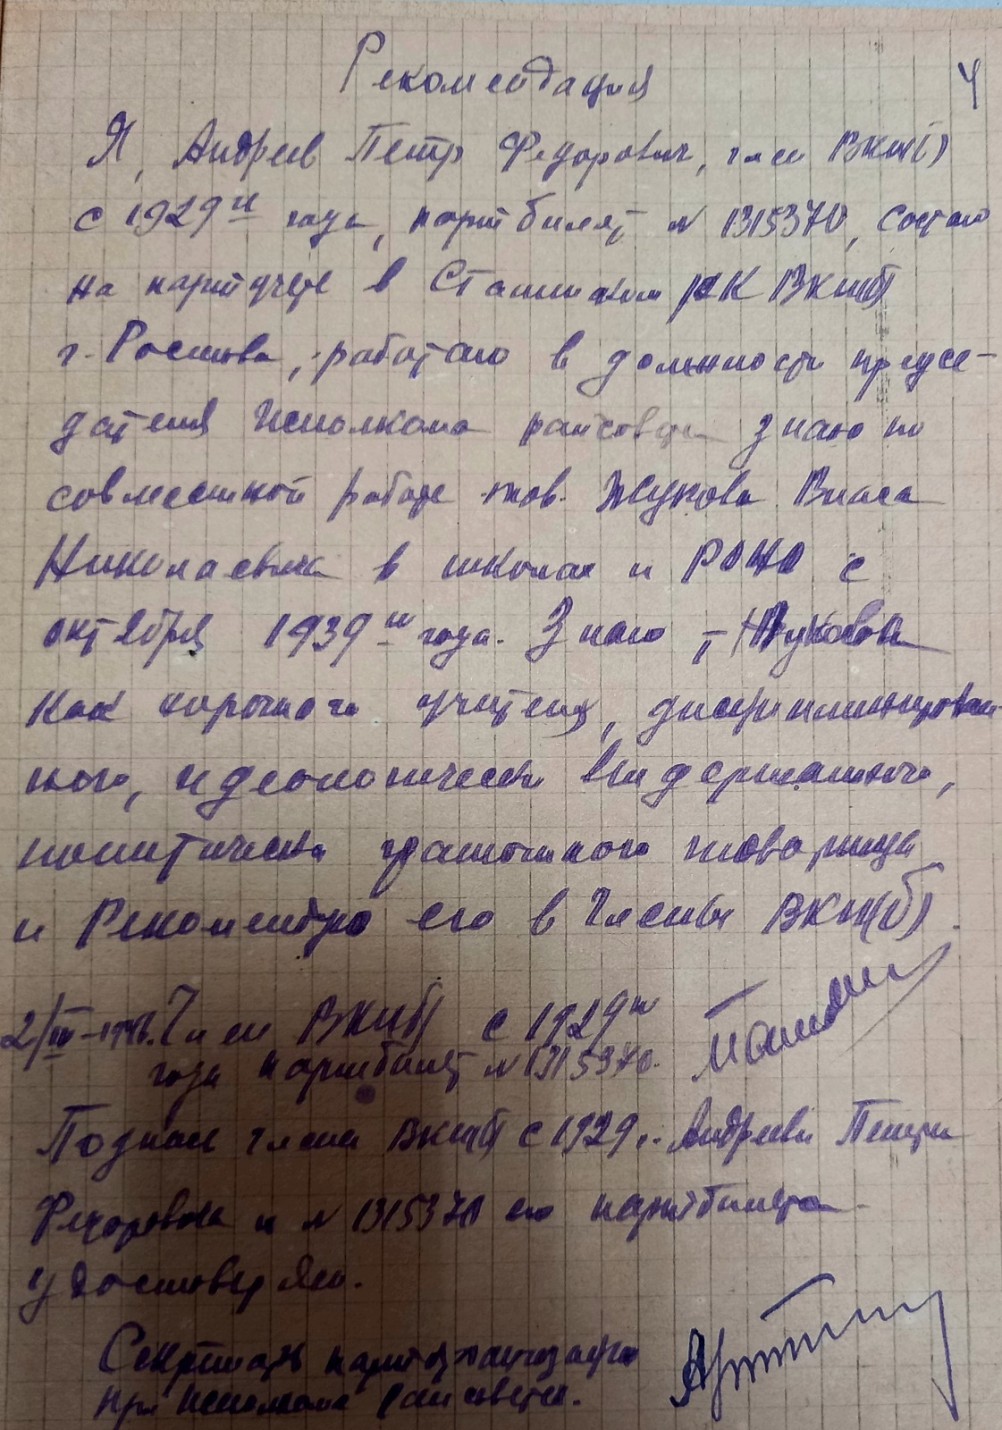 Рекомендация
4
Я, Андреев Петр Федорович, член ВКП(б)
с 1929 го года, партбилет № 1315370, состою
на партучете в Сталинском РК ВКП(б)
г. Ростова, работаю в должности предсе-
дателя Исполкома райсовета знаю по
совместной работе тов. Жукова Власа
Николаевича в школах и РОНО с
октября 1939 го года. Знаю т. Жукова
как хорошего учителя, дисциплинирован-
ного, идеологически выдержанного,
политически грамотного товарища
и Рекомендую его в члены ВКП(б).
2/III-1946. Член ВКП(б) с 1929 го
года партбилет № 1315370.
Подпись члена ВКП(б) с 1929 г. Андреева Петра
Федоровича и № 1315370 его партбилета
удостоверяю.
Секретарь парторганизации
при Исполкоме Райсовета.